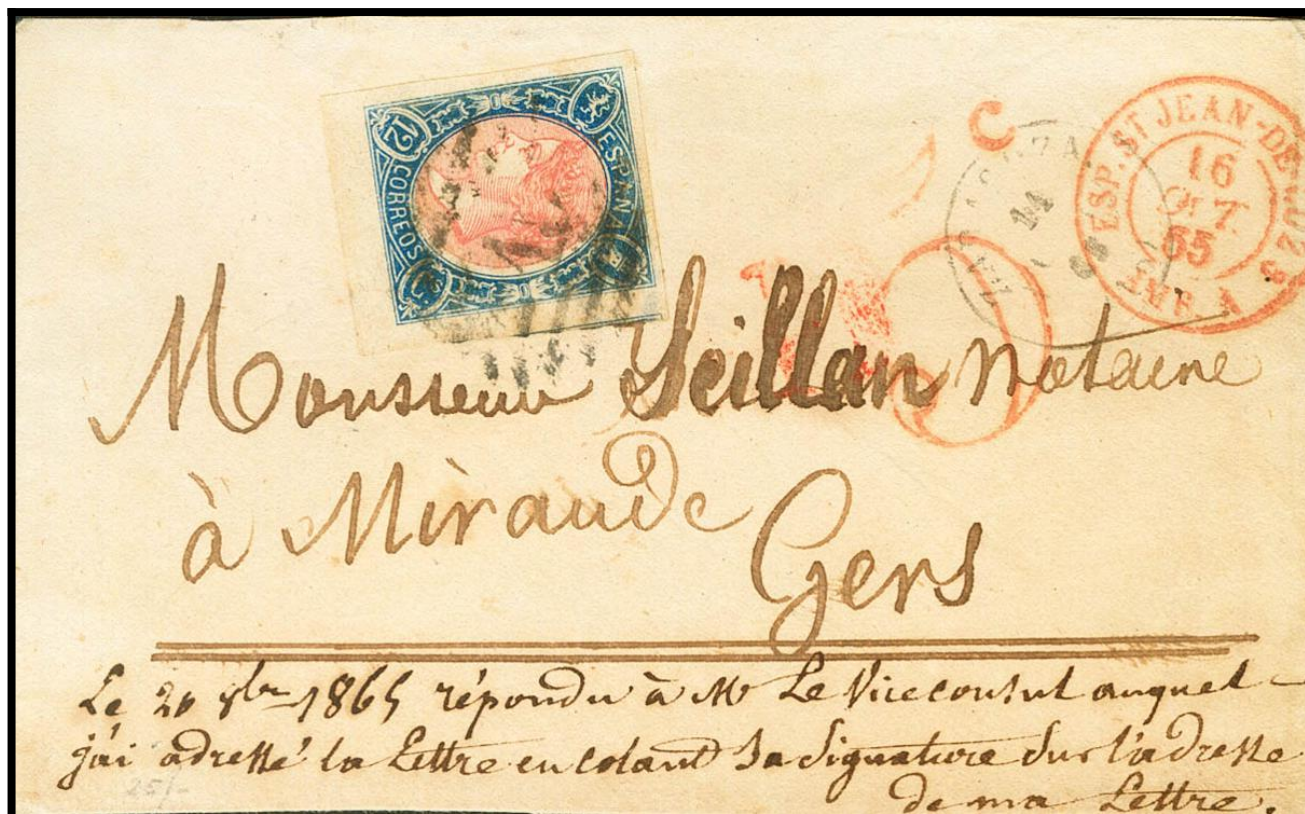 12
CORREOS
ESPAÑA
C
ESP. ST JEAN-DE-LUZ
16
OCT.
65
AMB. A
14
Monsieur Seillan notaire
à Mirande
Gers
Le 20 8bre 1865 répondu à Mr Le Vice consul auquel
j'ai adressé la Lettre en colant Sa Signature Sur l'adresse
de ma Lettre.
25/-